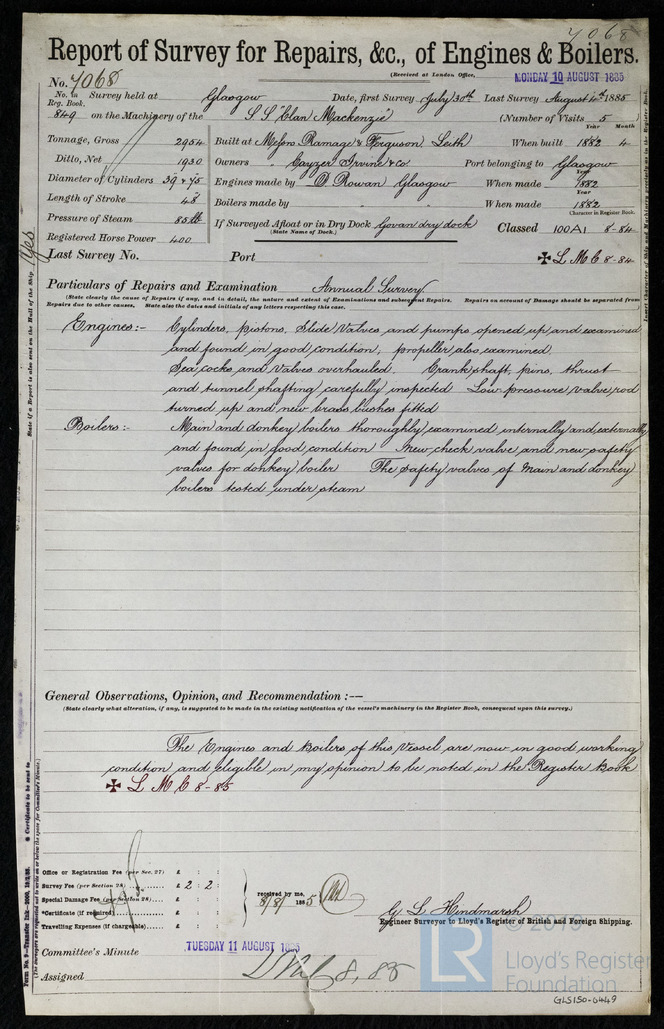 7068
Report of Survey for Repairs, &c., of Engines & Boilers.
(Received at London Office,
MONDAY 10 AUGUST 1885
No. 7068
No. in Reg. Book. 849
Survey held at Glasgow Date, first Survey July 30th Last Survey August 4th 1885
on the Machinery of the S S "Clan Mackenzie" (Number of Visits 5
Year Month
Tonnage, Gross 2954 Built at Messrs Ramage & Ferguson, Leith When built 1882 4
Ditto, Net 1930 Owners Cayzer Irvine & Co. Port belonging to Glasgow
Year
Diameter of Cylinders 39 & 75 Engines made by D Rowan Glasgow When made 1882
Year
Length of Stroke 48 Boilers made by When made 1882
Pressure of Steam 85 lb If Surveyed Afloat or in Dry Dock Govan dry dock
(State Name of Dock.)
Character in Register Book.
Classed 100A1 8-84
Registered Horse Power 400
Last Survey No. Port ✠ L M C 8-84
Particulars of Repairs and Examination Annual Survey
(State clearly the cause of Repairs if any, and in detail, the nature and extent of Examinations and subsequent Repairs. Repairs on account of Damage should be separated from
Repairs due to other causes. State also the dates and initials of any letters respecting this case.
Engines:- Cylinders, pistons, Slide Valves and pumps opened up and examined
and found in good condition, propeller also examined.
Sea cocks and Valves overhauled. Crank shaft, pins, thrust
and tunnel shafting carefully inspected Low pressure valve rod
turned up and new brass bushes fitted
Boilers:- Main and donkey boilers thoroughly examined internally and externally
and found in good condition New check valve and new safety
valves for donkey boiler The safety valves of Main and donkey
boilers tested under steam
General Observations, Opinion, and Recommendation :—
(State clearly what alteration, if any, is suggested to be made in the existing notification of the vessel's machinery in the Register Book, consequent upon this survey.)
The Engines and Boilers of this Vessel are now in good working
condition and eligible in my opinion to be noted in the Register Book
✠ L M C 8-85
Office or Registration Fee (per Sec. 27) £ : :
Survey Fee (per Section 28) £ 2 : 2 :
Special Damage Fee (per Section 28) £ : :
*Certificate (if required) £ : :
Travelling Expenses (if chargeable) £ : :
received by me,
8/8/ 1885
G L Hindmarsh
Engineer Surveyor to Lloyd's Register of British and Foreign Shipping.
Committee's Minute TUESDAY 11 AUGUST 1885
Assigned L M C 8, 85
State if a Report is also sent on the Hull of the Ship. Yes
Form No. 9
LR
© 2019
Lloyd's Register
Foundation
GLS150-0449